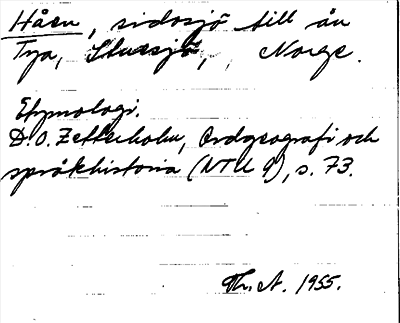 Håen, sidosjö till ån
Tya, Stuesjö, Norge.
Etymologi.
D.O. Zetterholm, Ordgeografi och
språkhistoria (NTU 9), s. 73.
Th. A. 1955.